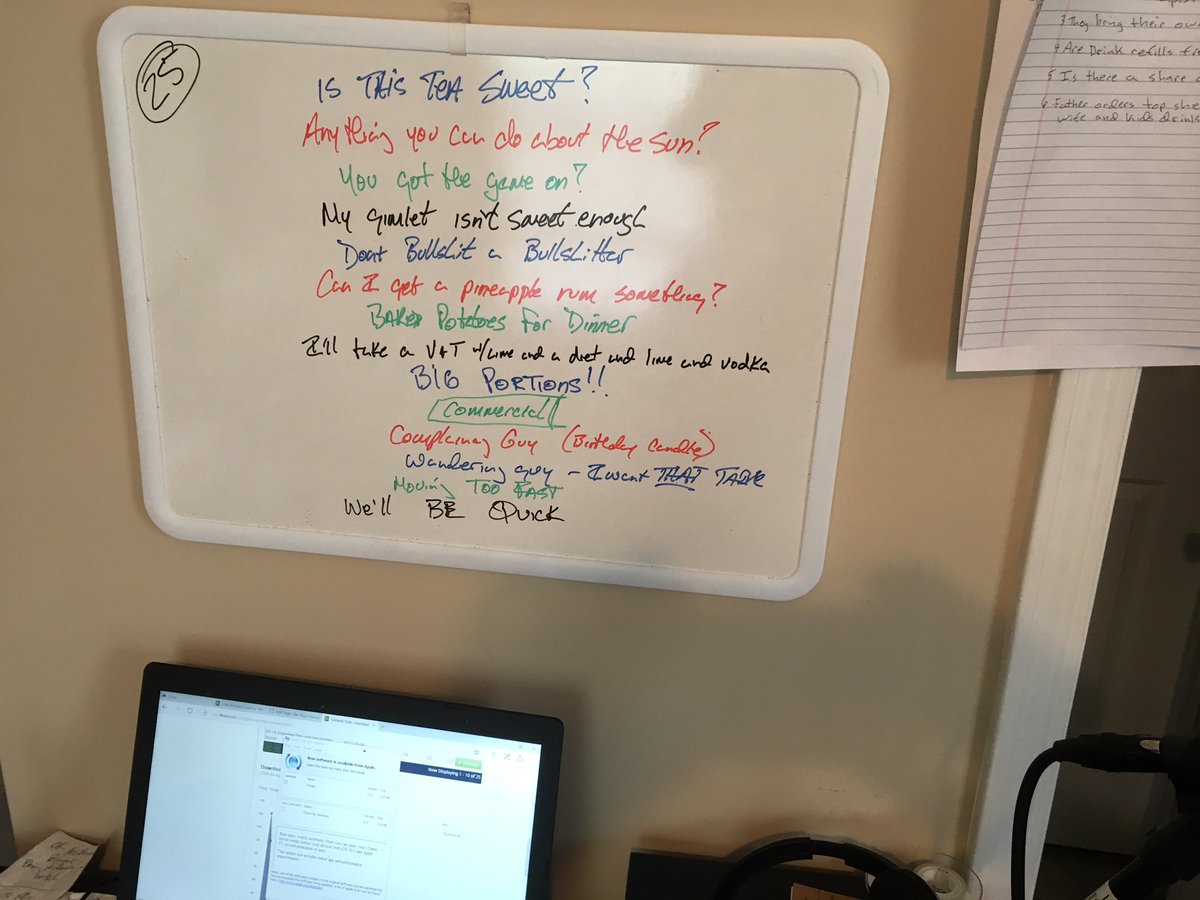 25
Is This Tea Sweet?
Anything you can do about the sun?
You got the game on?
My gimlet isn't sweet enough
Dont Bullshit a Bullshitter
Can I get a pineapple rum something?
Baked Potatoes For Dinner
I'll take a V+T w/lime and a diet and lime and vodka
BIG PORTIONS!!
Commercial
Complaining Guy (Birthday Candles)
Wandering guy - I want THAT TABLE
Moving TOO FAST
We'll BE Quick
3 They bring their own
4 Are Drink refills
5 Is there a share
6 Father orders top
wife and kids drink
New software is available from Apple
Now Displaying 1 - 10 of 25